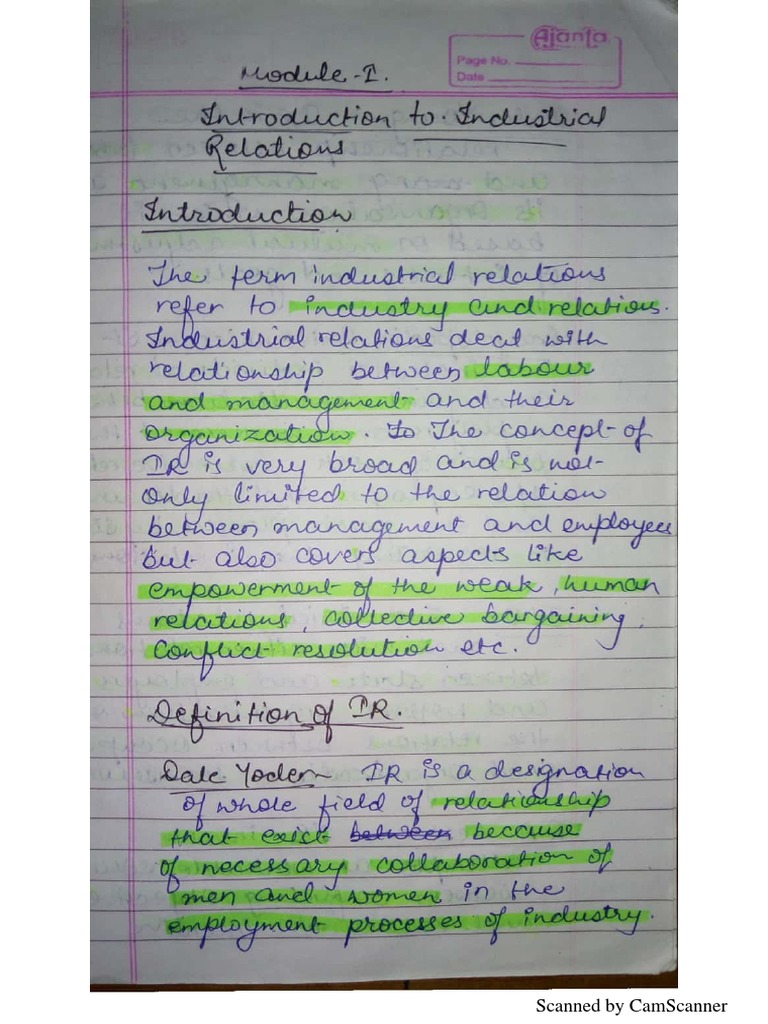 Ajanta
Page No.
Date
Module-I.
Introduction to Industrial
Relations
Introduction
The term industrial relations
refer to industry and relations.
Industrial relations deal with
relationship between labour
and management and their
organization. To The concept of
IR is very broad and is not
only limited to the relation
between management and employees
but also covers aspects like
empowerment of the weak, human
relations, collective bargaining,
conflict resolution etc.
Definition of IR.
Dale Yoder- IR is a designation
of whole field of relationship
that exist between because
of necessary collaboration of
men and women in the
employment processes of industry.
Scanned by CamScanner